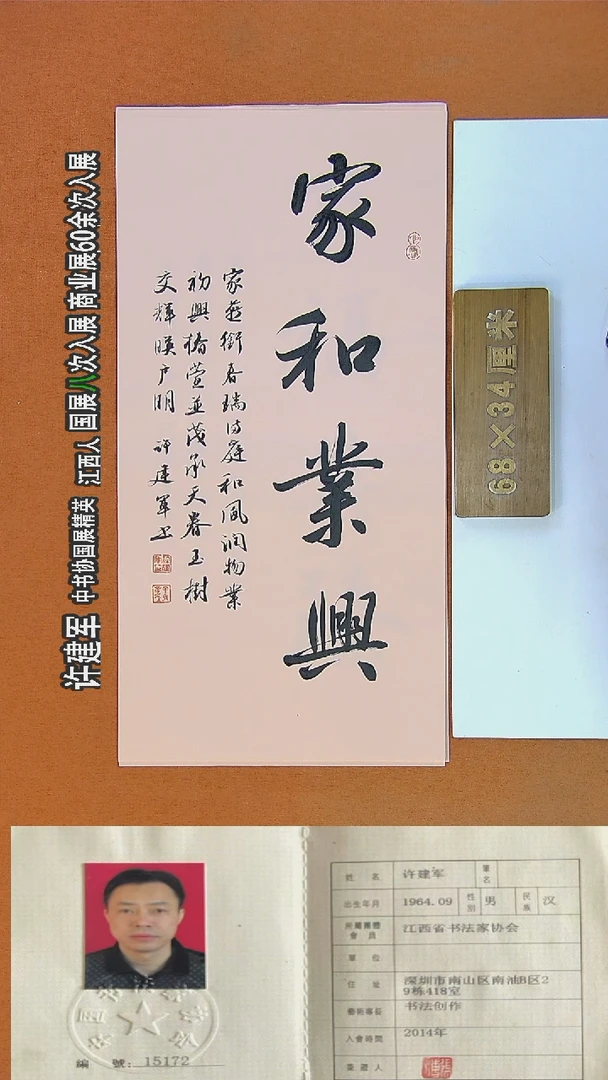 家和業興
家燕銜春瑞滿庭和風潤物業
初興椿萱並茂承天眷玉樹
交輝暎户明 許建軍书
68×34厘米
许建军 中书协国展精英 江西人 国展八次入展 商业展60余次入展
姓 名 许建军 筆名
出生年月 1964.09 性别 男 民族 汉
所屬團體會員 江西省书法家协会
單 位
住 址 深圳市南山区南油B区2
9栋418室
藝術專長 书法创作
入會時間 2014年
發證人
編 號: 15172